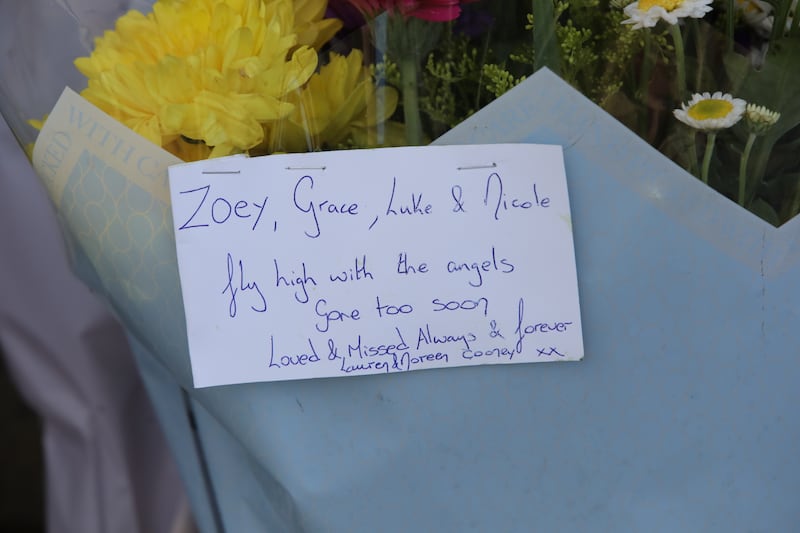 Zoey, Grace, Luke & Nicole
fly high with the angels
Gone too soon
Loved & Missed Always & forever
Lauren & Noreen Cooney xx
WITH CA
XED